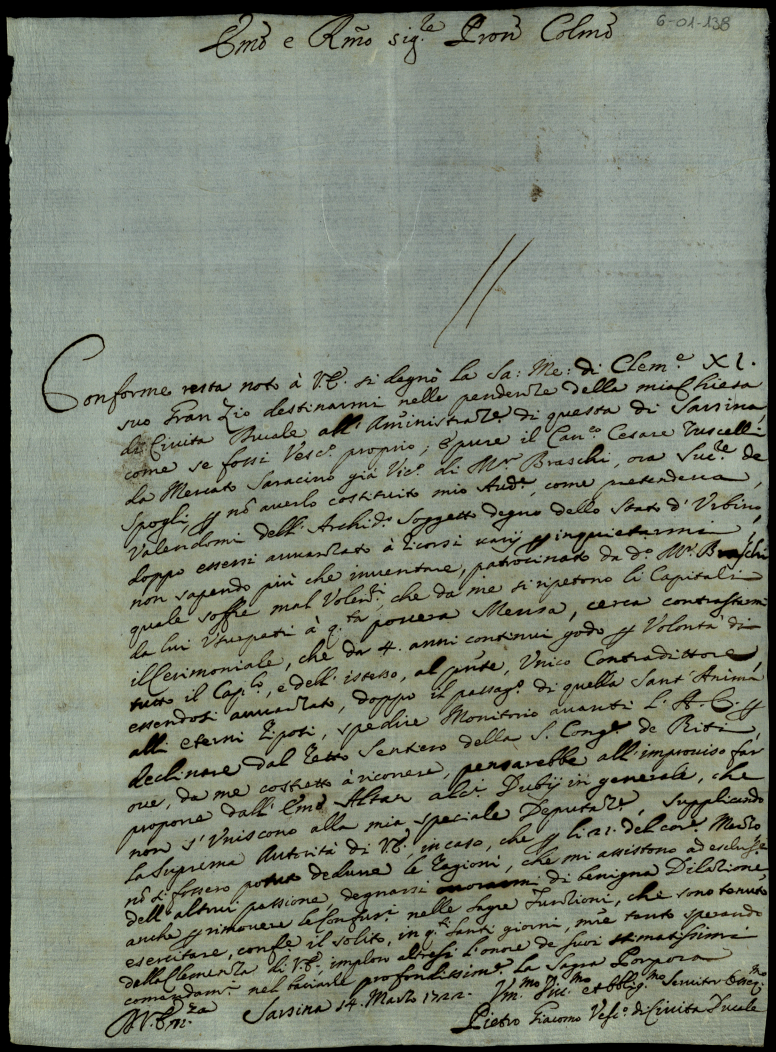 6-01-138
Emo e Rmo sig.re Pron Colmo
Conforme resta noto à V.E. si degnò la Sa: Me: di Clem.e XI.
suo Franzio destinarmi nelle pendenze della mia Chiesa
di Civita Ducale all' Amministraz.e di questa di Sarsina,
come se fossi Vesc.o proprio; e pure il Can.co Cesare Tuscelli
da Mercato Saracino già Vic.o di Mr Braschi, ora Suc.re de
Spogli, p nò averlo costituito mio Aud.e, come pretendeva,
Valendomi dell' Archid.o soggetto degno dello Stato d' Urbino,
doppo essersi avvanzato à ricorsi varij p inquietarmi
non sapendo più che inventare, patrocinato da d.o Mr Braschi
quale soffre mal Volent.i, che da me si ripetono li Capitali
da lui Usurpati à q.ta povera Mensa, cerca contrastarmi
il Cerimoniale, che da 4. anni continui godo p Volontà di
tutto il Cap.lo, e dell' istesso, al pnte, Unico Contradittore,
essendosi avvanzato, doppo il passag.o di quella Sant' Anima
alli eterni riposi, spedire Monitorio avanti l' A. C. p
declinare dal retto Sentiero della S. Cong.e de Riti,
ove, da me costretto à ricorrere, pensarebbe all' improviso far
proporre dall' Emo Altan alc.i Dubij in generale, che
non s' Uniscono alla mia speciale Deputaz.e, supplicando
la Suprema Autorità di V.E. in caso, che p li 21. del cor.e Marzo
nò si fossero potute dedurre le ragioni, che mi assistono ad escluss.e
dell' altrui passione, degnarsi onorarmi di benigna Dilazione,
anche p rimovere le Confus.i nelle Sagre Funzioni, che sono tenuto
esercitare, conf.e il solito, in q.ti Santi giorni, m̃re tanto sperando
della Clemenza di V.E. imploro altresì l' onore de suoi stimatissimi
comandam.i nel baciarle profondissim.e la Sagra Porpora
Di V. Em.za Sarsina 14. Marzo 1722. Um.mo Div.mo et obblig.mo Servitor Osseq.mo
Pietro Giacomo Vesc.o di Civita Ducale